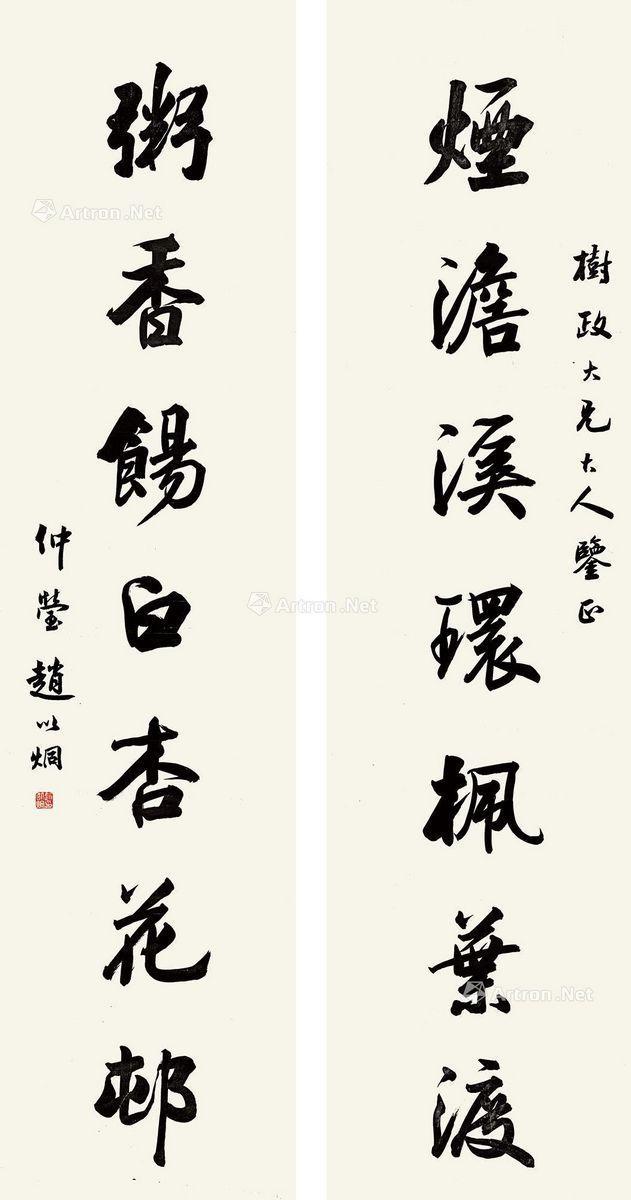 樹政大兄大人鑒正
煙澹溪環楓葉渡
粥香餳白杏花邨
仲瑩趙以烱
Artron.Net
Artron.Net
Artron.Net